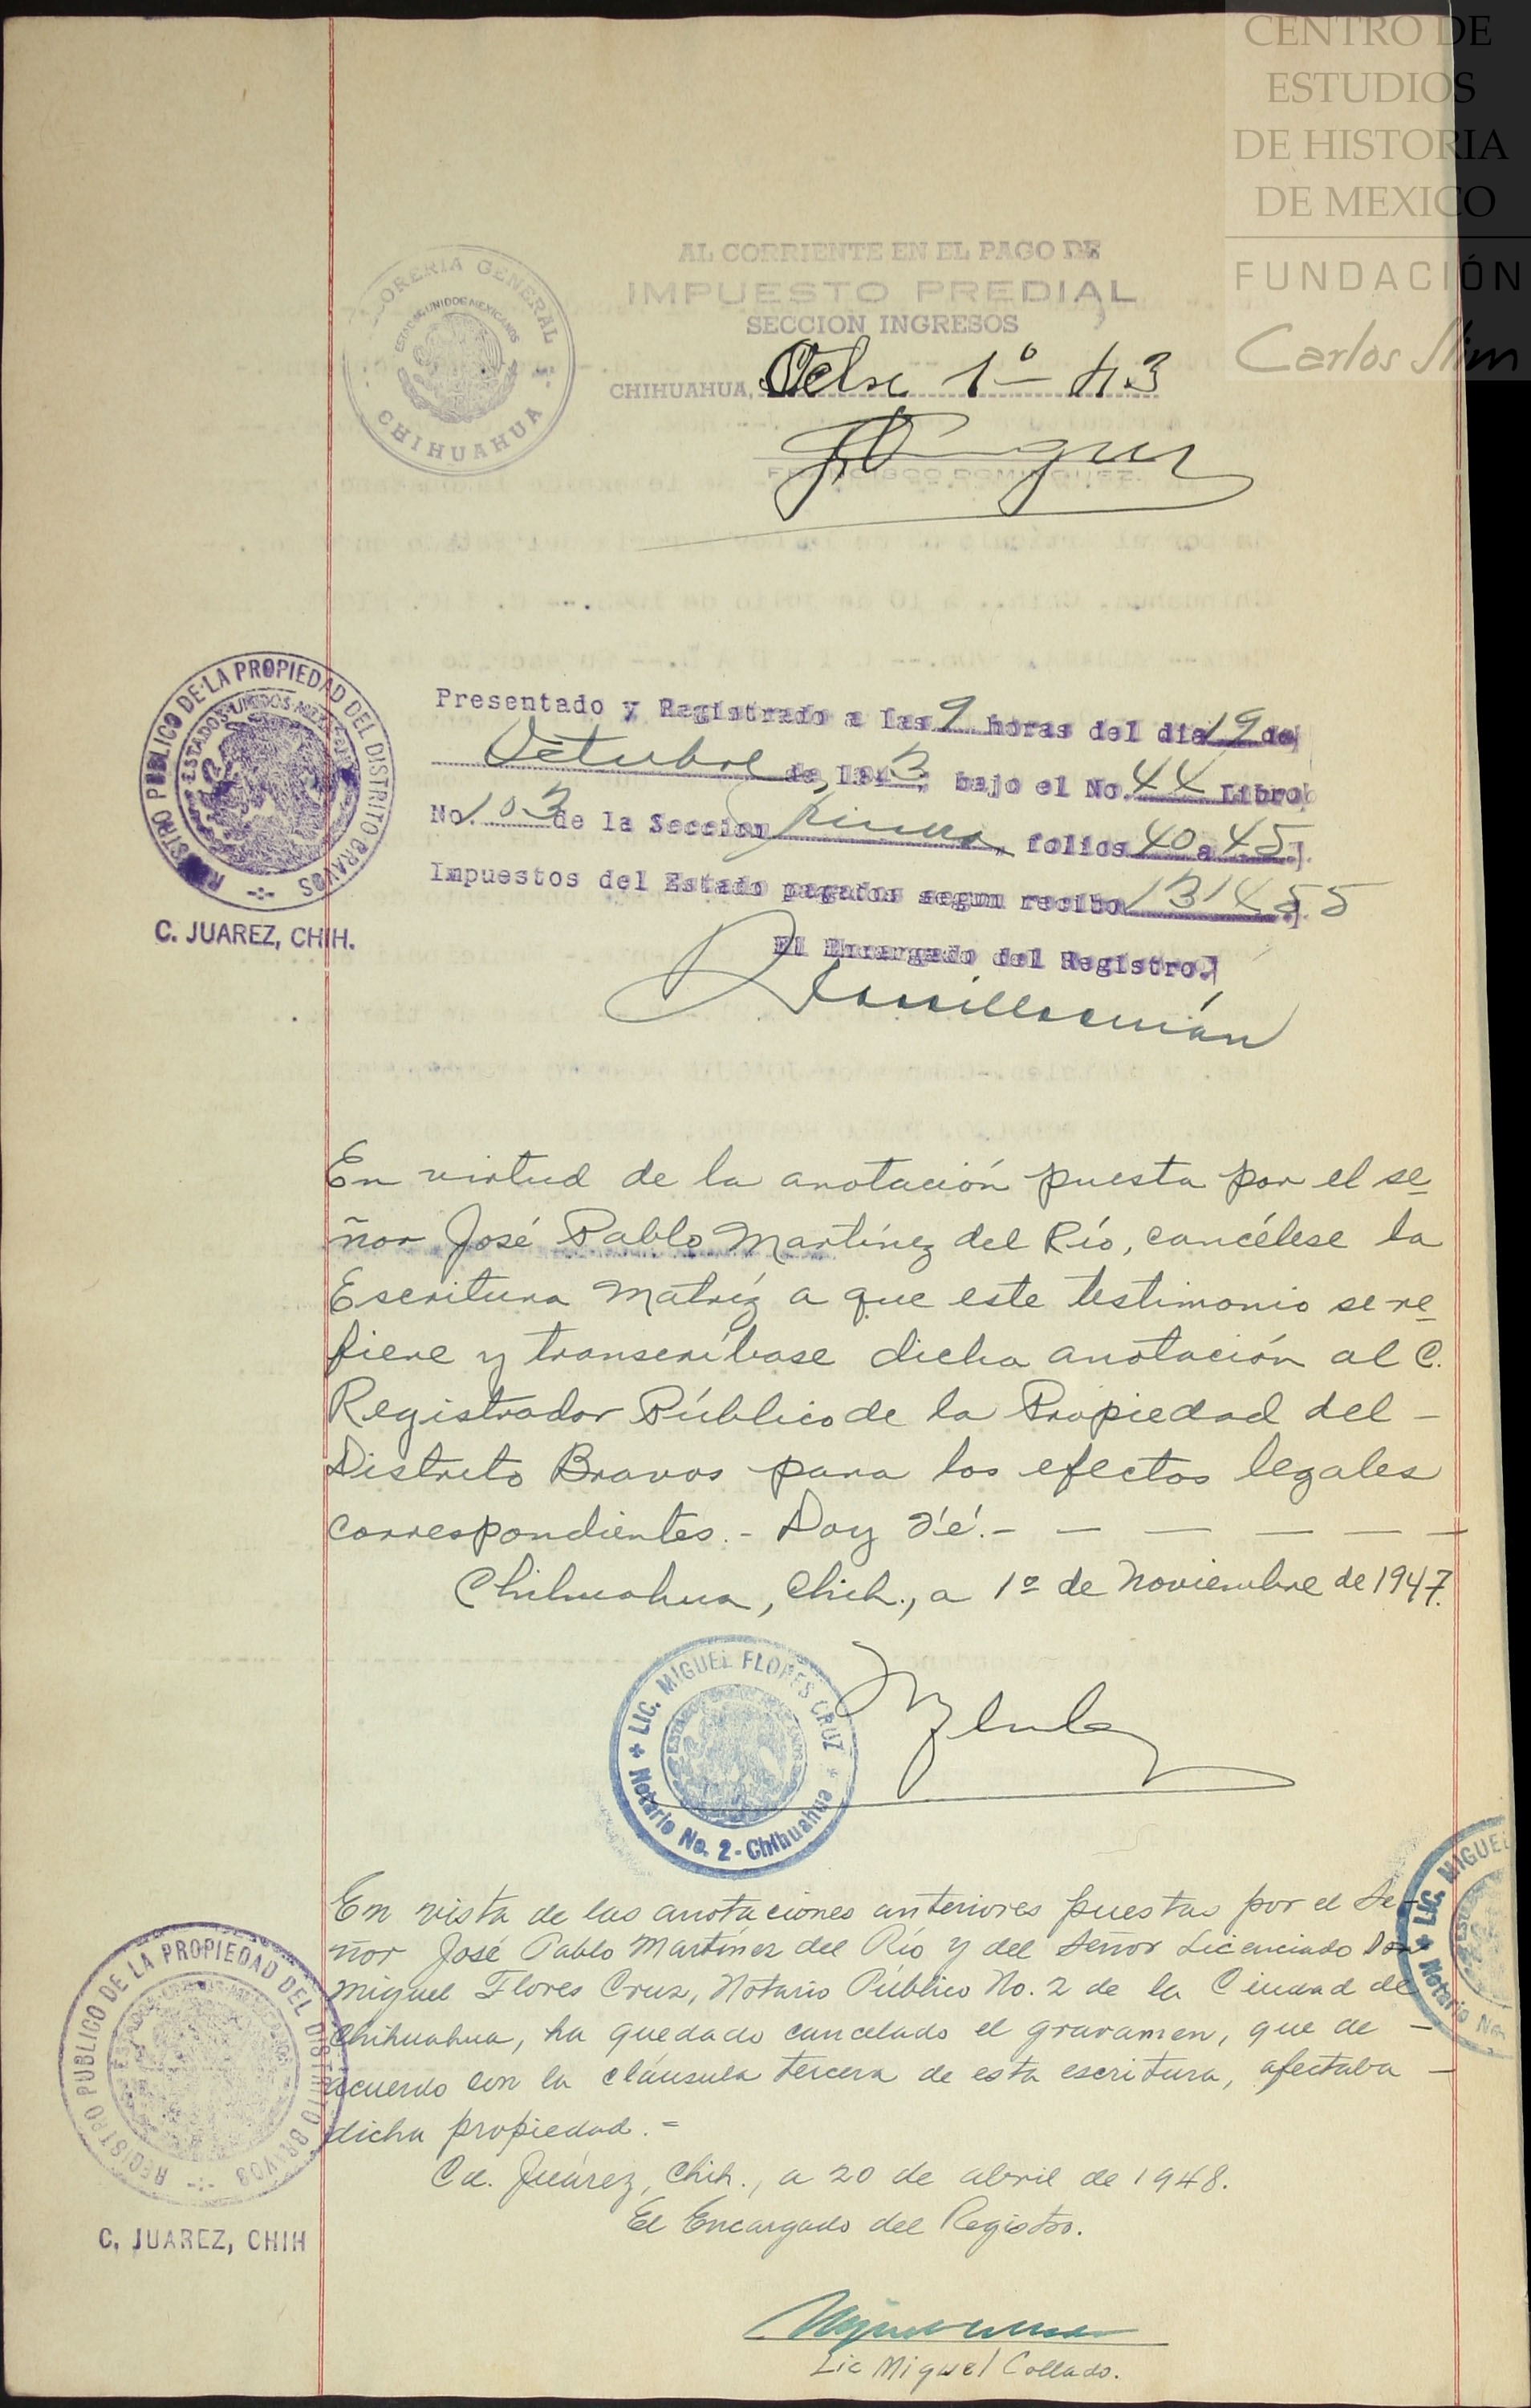 CENTRO DE
ESTUDIOS
DE HISTORIA
DE MEXICO
FUNDACIÓN
Carlos Slim
TESORERIA GENERAL
ESTADOS UNIDOS MEXICANOS
CHIHUAHUA
AL CORRIENTE EN EL PAGO DE
IMPUESTO PREDIAL
SECCION INGRESOS
CHIHUAHUA, Octbre 1º 43
FRANCISCO DOMINGUEZ
REGISTRO PUBLICO DE LA PROPIEDAD DEL DISTRITO BRAVOS
ESTADOS UNIDOS MEXICANOS
C. JUAREZ, CHIH.
Presentado y Registrado a las 9 horas del dia 19 de
Octubre de 1943, bajo el No. 44 Libro
No. 103 de la Seccion primera, folios 40 a 45.
Impuestos del Estado pagados segun recibo 131455
El Encargado del Registro.
En virtud de la anotación puesta por el se-
ñor José Pablo Martínez del Río, cancélese la
Escritura Matríz a que este testimonio se re-
fiere y transcríbase dicha anotación al C.
Registrador Público de la Propiedad del -
Distrito Bravos para los efectos legales
correspondientes.- Doy Fé.- - - - - - -
Chihuahua, Chih., a 1º de Noviembre de 1947.
LIC. MIGUEL FLORES CRUZ
Notario No. 2 - Chihuahua
En vista de las anotaciones anteriores puestas por el Se-
ñor José Pablo Martínez del Río y del Señor Licenciado Don
Miguel Flores Cruz, Notario Público No. 2 de la Ciudad de
Chihuahua, ha quedado cancelado el gravamen, que de -
acuerdo con la cláusula tercera de esta escritura, afectaba -
dicha propiedad.=
LIC. MIGUEL
Notario No.
REGISTRO PUBLICO DE LA PROPIEDAD DEL DISTRITO BRAVOS
C. JUAREZ, CHIH
Cd. Juárez, Chih., a 20 de abril de 1948.
El Encargado del Registro.
Lic Miguel Collado.